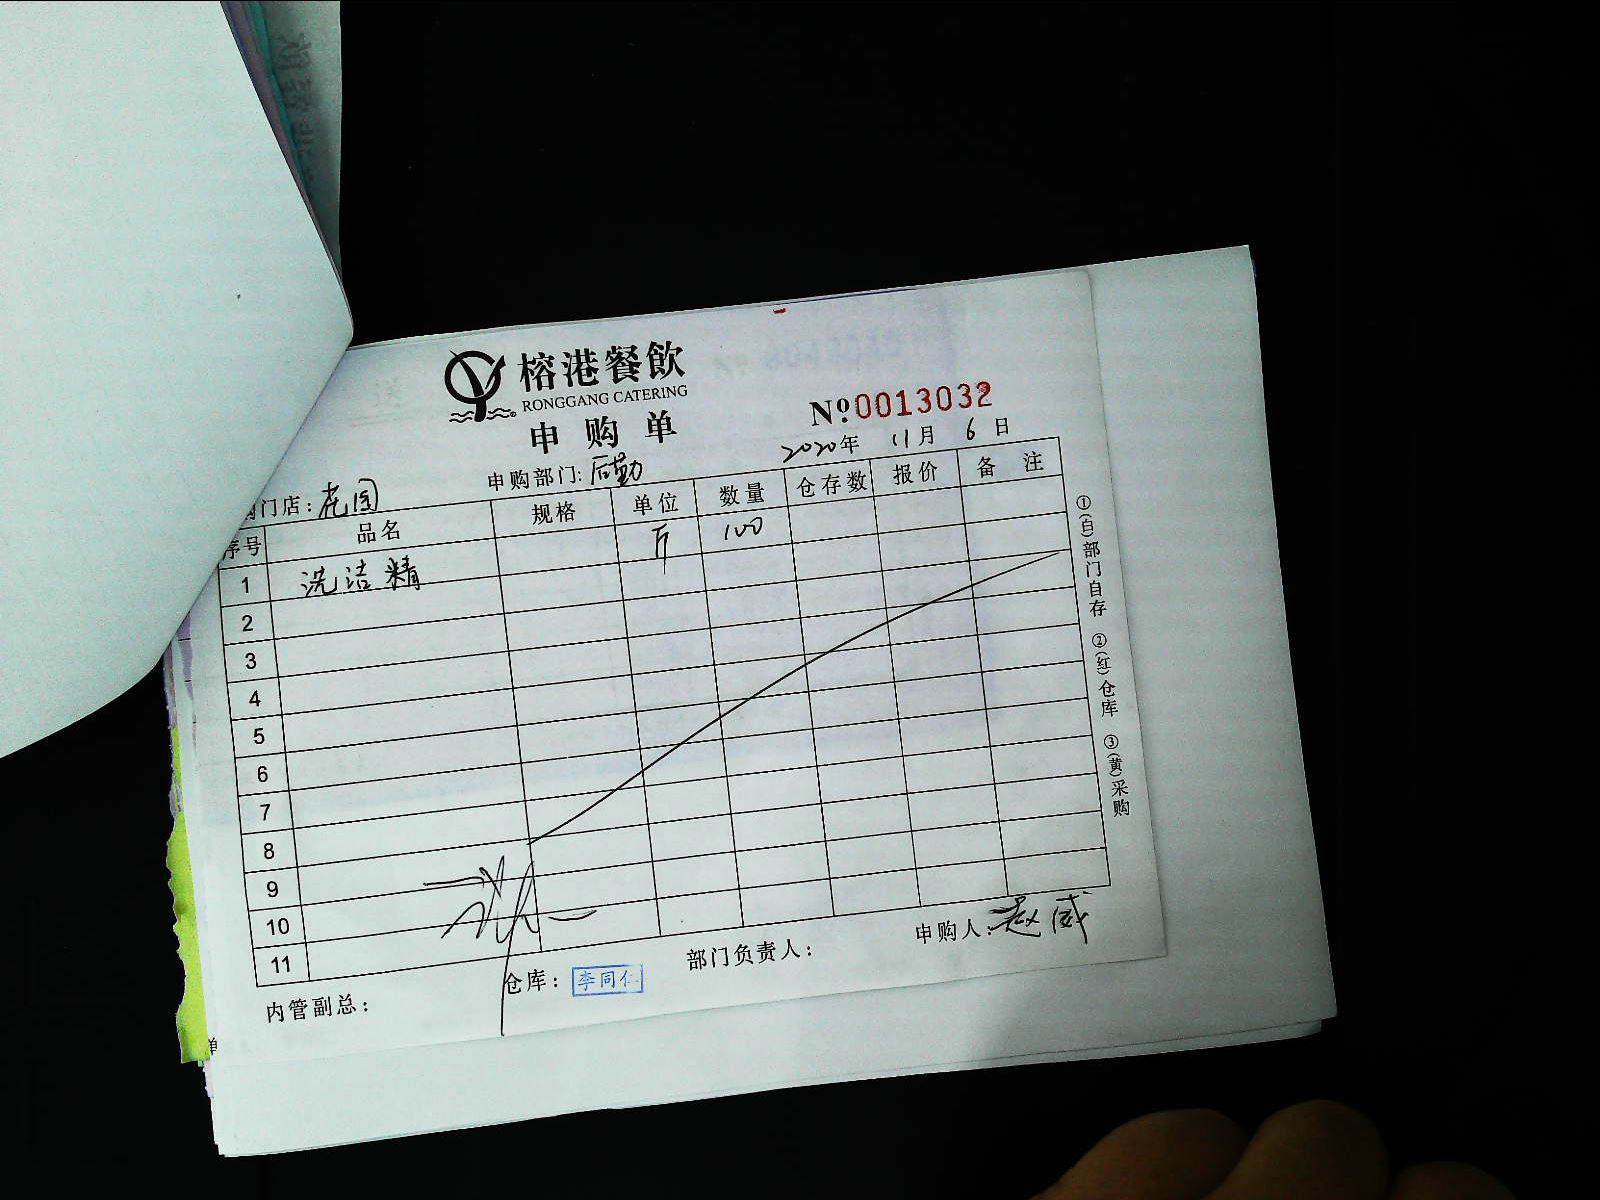 榕港餐飲
RONGGANG CATERING
申购单
№0013032
2020年 11月 6日
门店：花园
申购部门：后勤
序号 品名 规格 单位 数量 仓存数 报价 备注
1 洗洁精 斤 100
2
3
4
5
6
7
8
9
10
11
内管副总：
仓库：李同仁
部门负责人：
申购人：赵威
①(白)部门自存 ②(红)仓库 ③(黄)采购
单